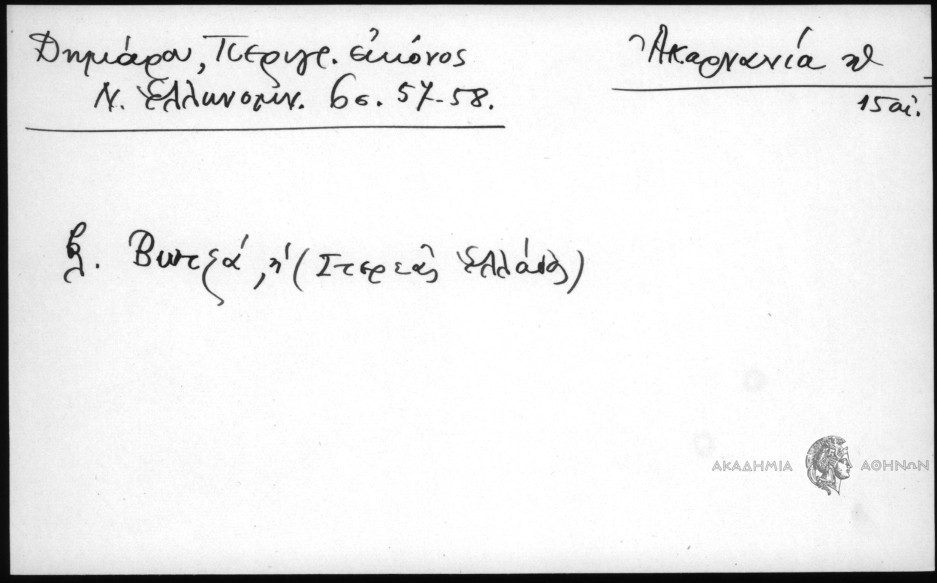 Δημιάρου, Περιγρ. εἰκόνος
Ν. Ἑλληνομν. 6 σ. 57-58.
Ἀκαρνανία ἡ
15 αἰ.
βλ. ἡ (Στερεᾶς Ἑλλάδος)
ΑΚΑΔΗΜΙΑ ΑΘΗΝΩΝ